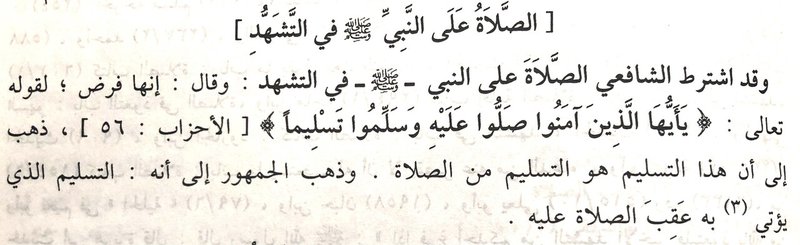 [ الصَّلاَةُ عَلَى النَّبِيِّ ﷺ في التَّشَهُّدِ ]
وقد اشترط الشافعي الصَّلاَةَ على النبي ـ ﷺ ـ في التشهد : وقال : إنها فرض ؛ لقوله
تعالى : ﴿ يَأَيُّهَا الَّذِينَ آمَنُوا صَلُّوا عَلَيْهِ وَسَلِّمُوا تَسْلِيماً ﴾ [ الأحزاب : ٥٦ ] ، ذهب
إلى أن هذا التسليم هو التسليم من الصلاة . وذهب الجمهور إلى أنه : التسليم الذي
يؤتي (٣) به عَقِبَ الصلاة عليه .